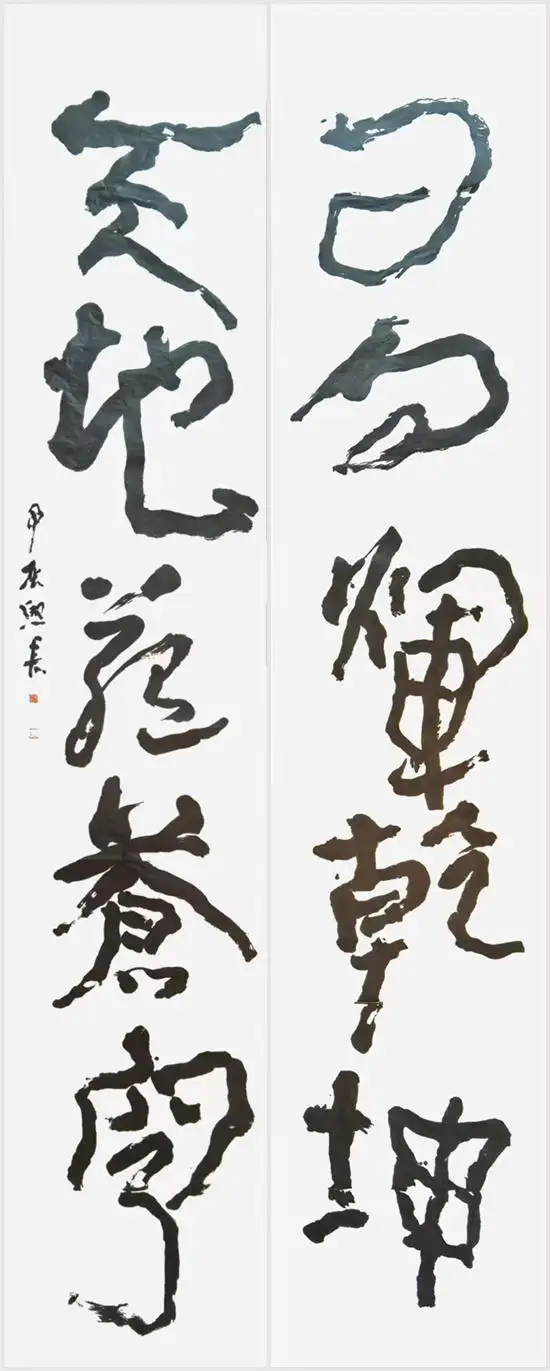 日月輝乾坤
天地蒼穹
甲辰興長